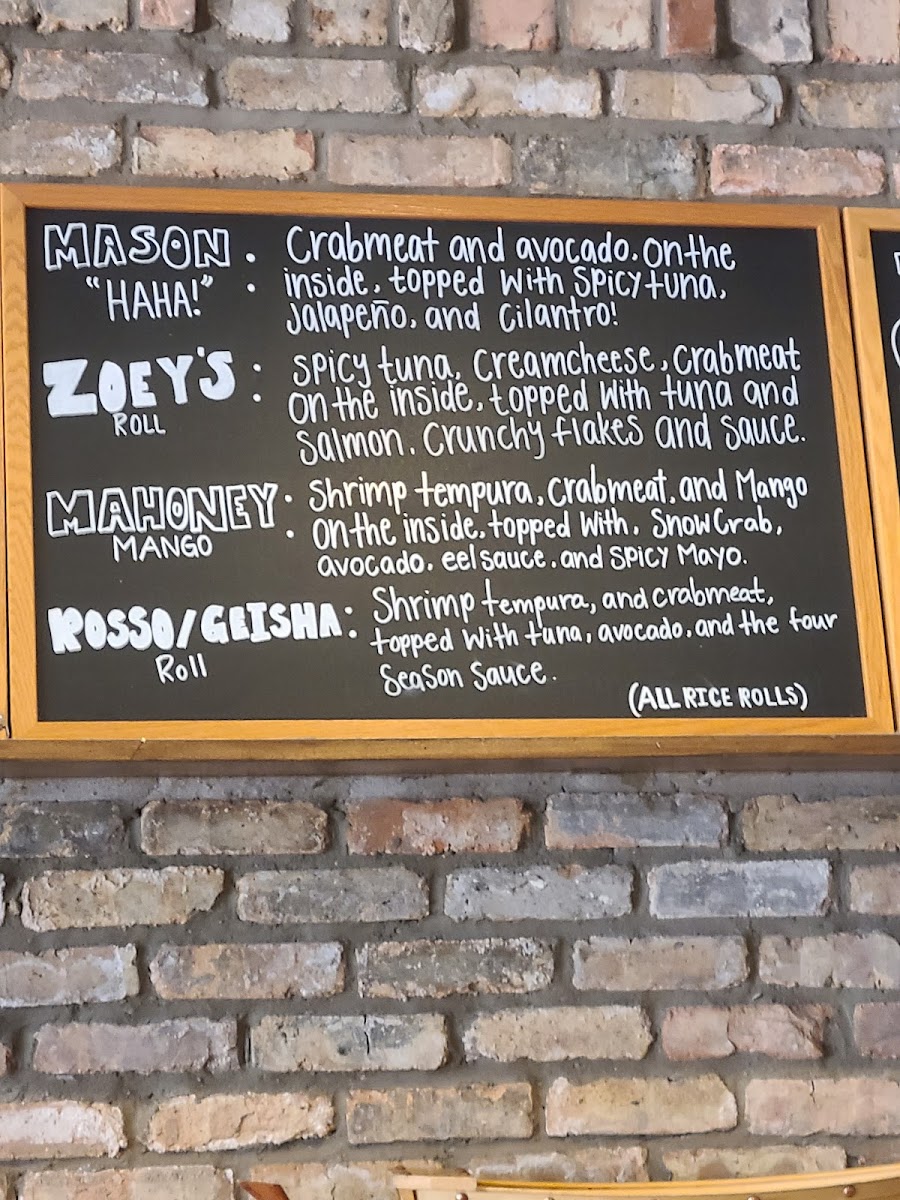 MASON : Crabmeat and avocado. on the
"HAHA!" inside, topped with spicy tuna,
Jalapeño, and cilantro!
ZOEY'S : spicy tuna, creamcheese, crabmeat
ROLL on the inside, topped with tuna and
salmon. crunchy flakes and sauce.
MAHONEY : Shrimp tempura, crabmeat, and Mango
MANGO on the inside, topped with, snow crab,
avocado, eel sauce, and spicy mayo.
ROSSO/GEISHA : Shrimp tempura, and crabmeat,
Roll topped with tuna, avocado, and the four
season sauce.
(ALL RICE ROLLS)